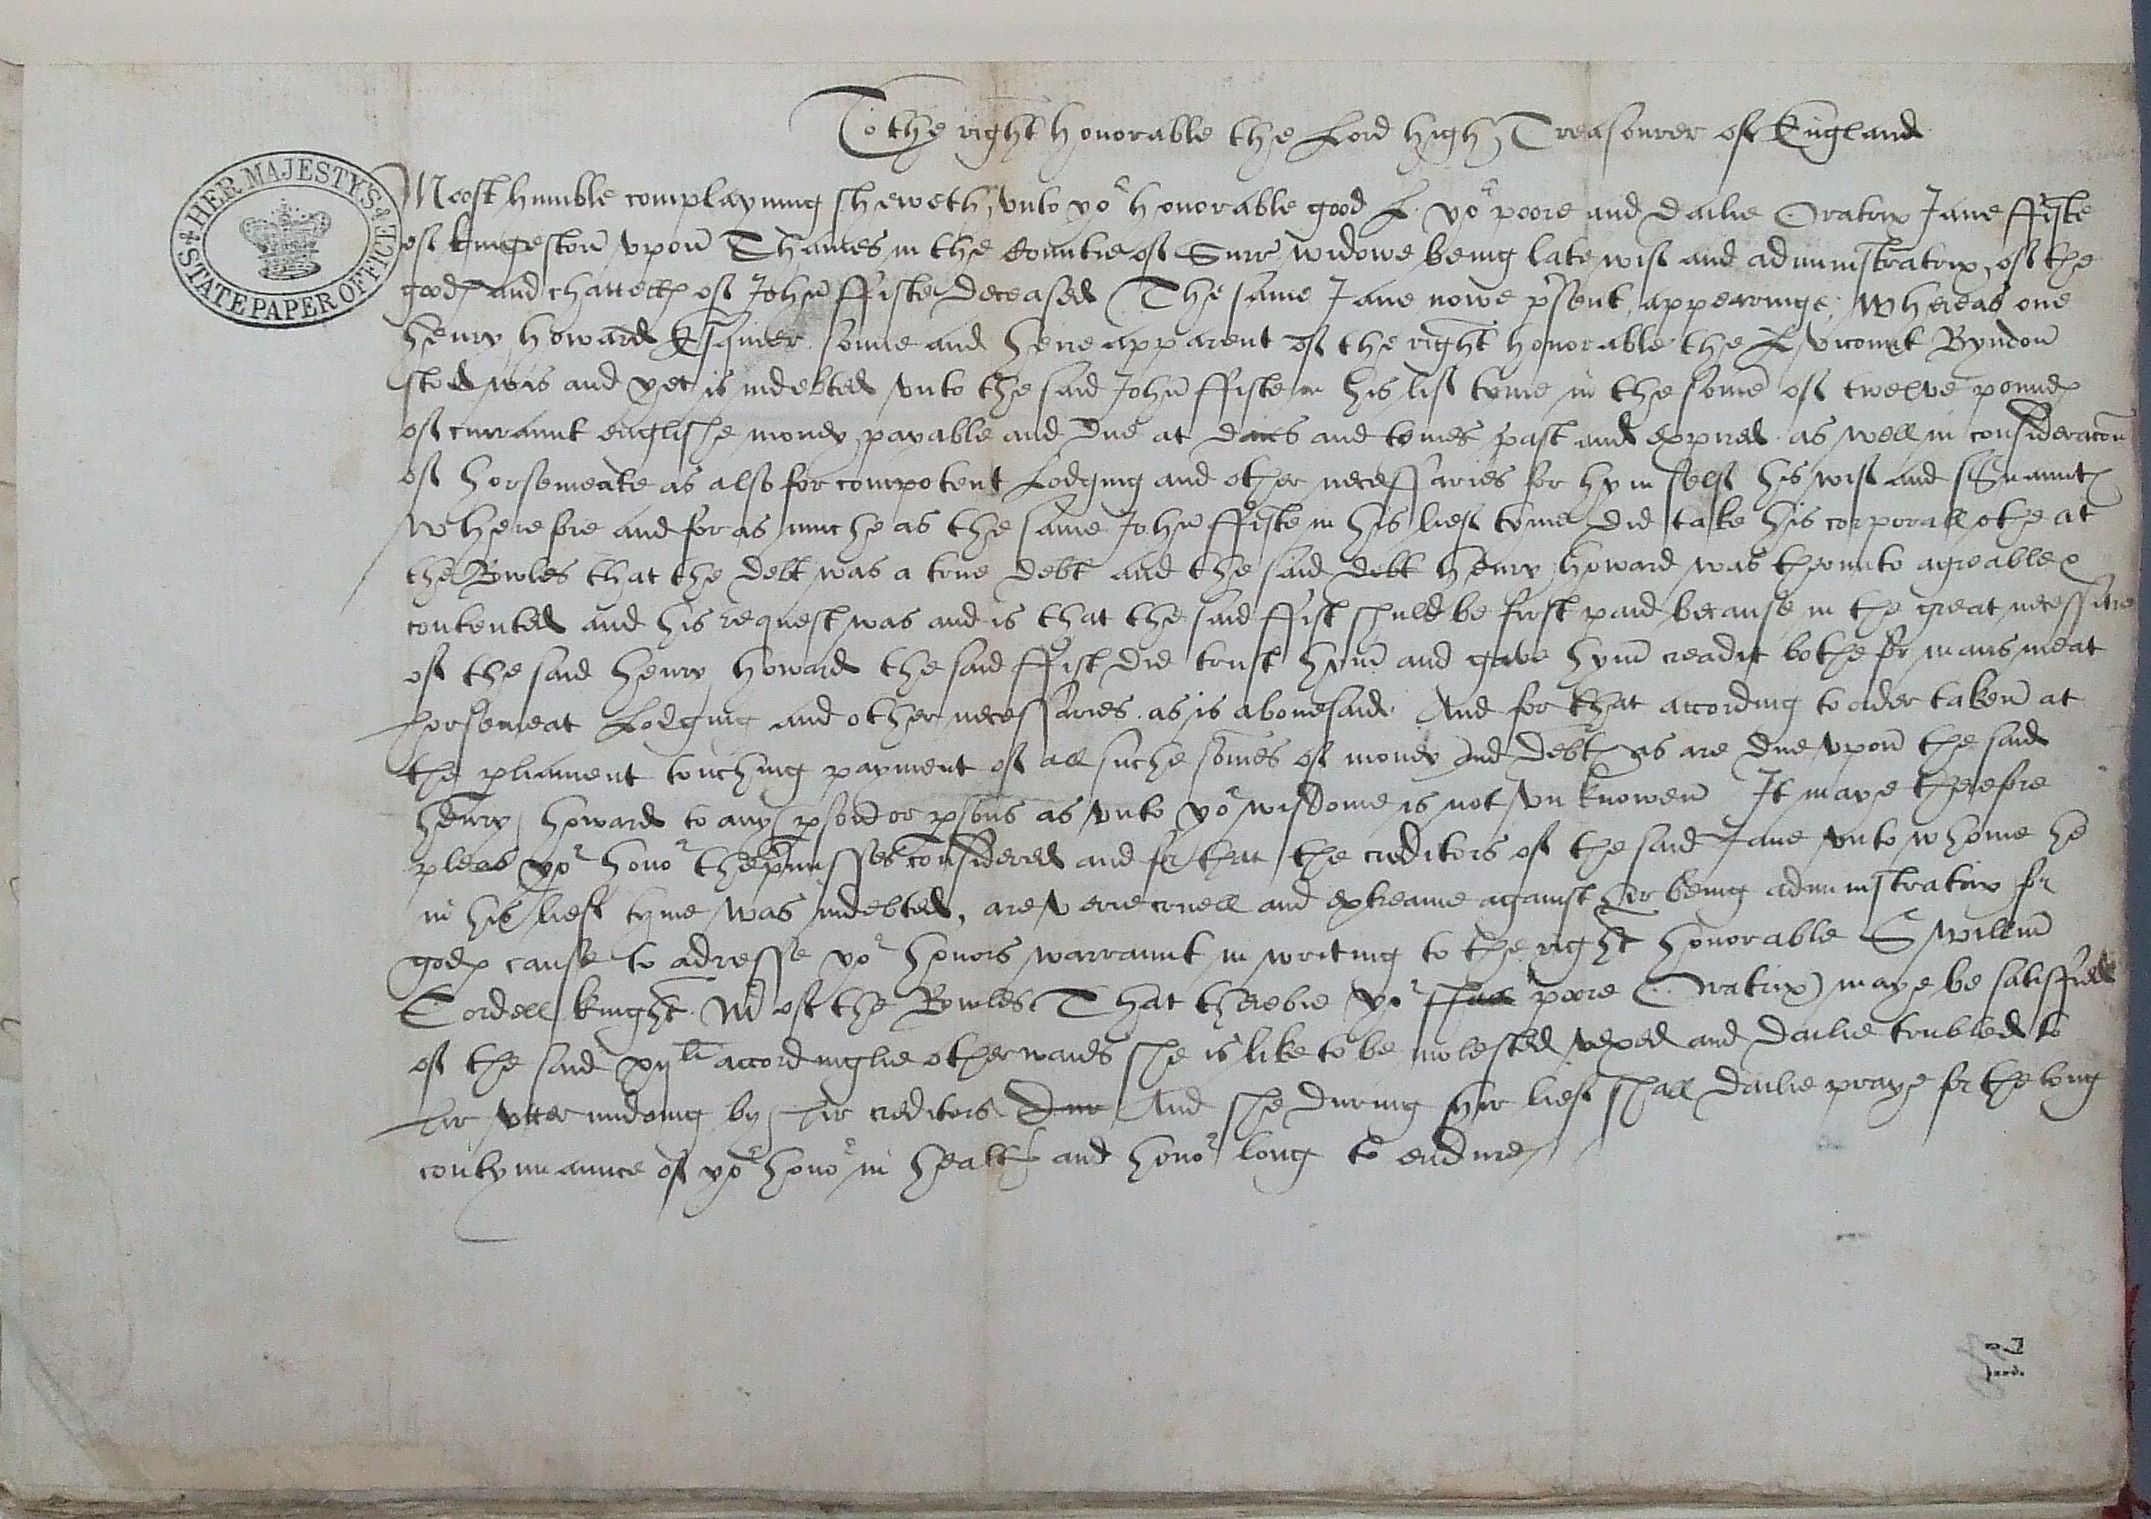 To the right honorable the Lord high Treasourer of England
HER MAJESTY'S STATE PAPER OFFICE
Moost humble complayning sheweth vnto yor honorable good L. yor poore and dailie Oratrix Jane ffiste
of kingestoun vpon Thames in the Countie of Surr widowe being late wif and administratrix of the
goodes and chattelles of John ffiste deceased The same Jane nowe present appearinge, Whereas one
henry howard Esquier sonne and heire apparent of the right honorable the L. vicount Byndon
stod was and yet is indebted vnto the said John ffiste in his lif tyme in the some of twelve poundes
of currannt englishe money payable and due at daies and tymes past and expired as well in consideracon
of horsemeate as also for compotent Lodging and other necessaries for hym self his wif and servauntes
Wherefore and for as muche as the same John ffiste in his lief tyme did take his corporall othe at
the Rowles that the debt was a true debt and the said debt henry howard was therunto agreable &
contented and his request was and is that the said ffist shuld be first paid because in the great necessitie
of the said henry howard the said ffist did trust hym and gave hym creadit bothe for mans meat
horsemeat Lodging and other necessaries as is abovesaid. And for that according to order taken at
the parliament touching payment of all suche somes of money and debtes as are due vpon the said
henry howard to any person or persons as vnto yor wisdome is not vnknowen It maye therefore
please yor honor the premisses considered and for that the creditors of the said Jane vnto whome he
in his lief tyme was indebted, are verie cruell and extreame against hir being administratrix for
godes cause to adresse yor honors warrannt in writing to the right honorable Sr willm
Cordell knight Mr of the Rowles That therebie yor poore Oratrix maye be satisfied
of the said xijli accordinglie otherwaies she is like to be molested vexed and dailie trubled to
hir vtter undoing by hir creditors Due And she during hir lief shall dailie praye for the long
contynuannce of yor honor in healthe and honor long to endure